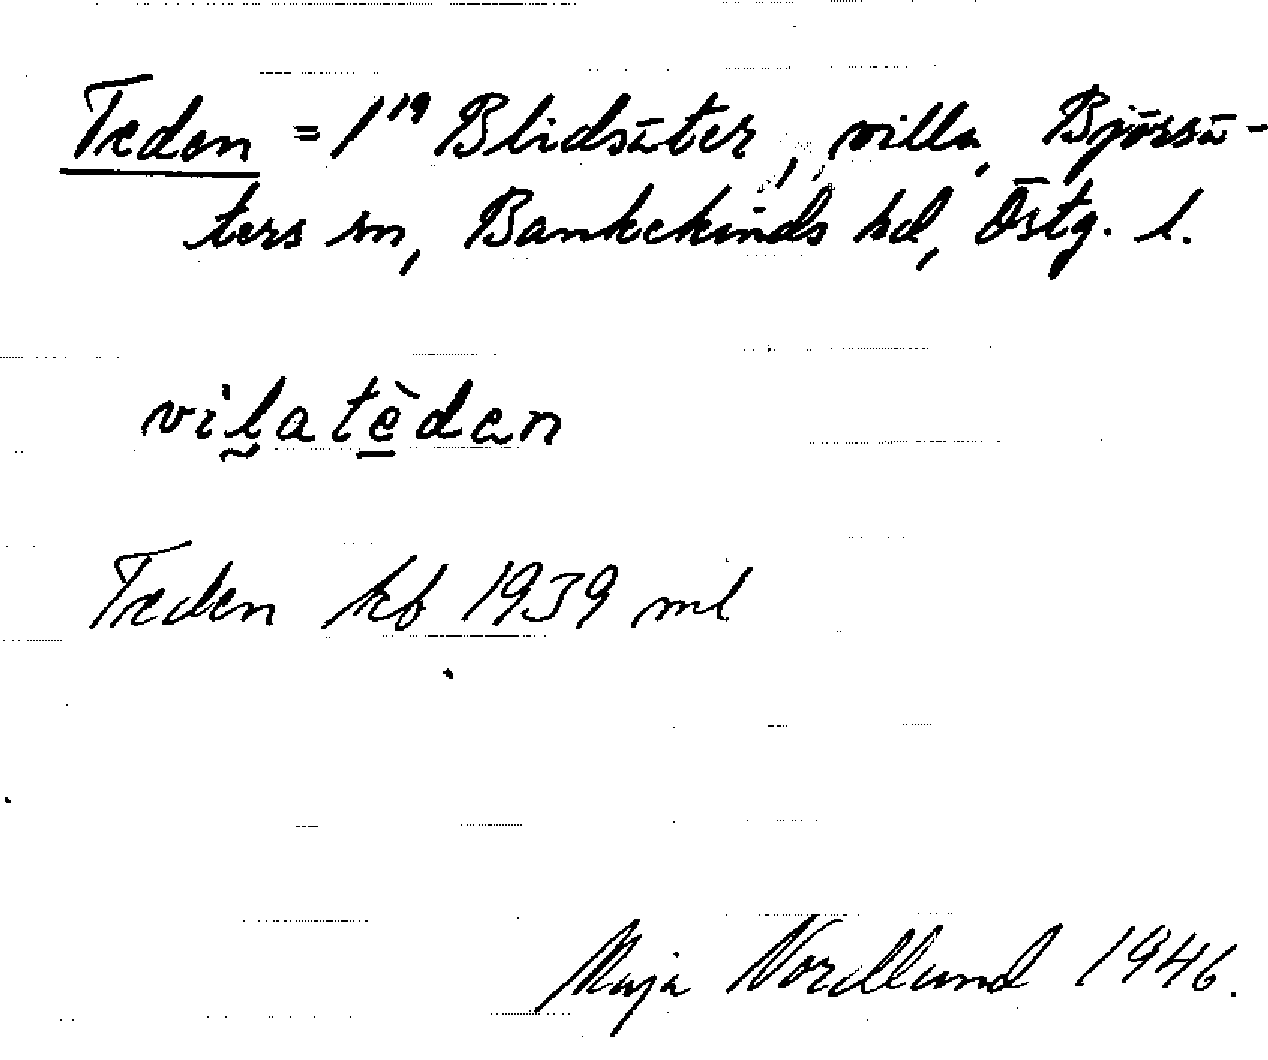 Teden = 1¹⁹ Blidsäter, villa, Björsä-
ters sn, Bankekinds hd, Östg. l.
vilatèdan
Teden kb 1939 ml
Maja Nordlund 1946.